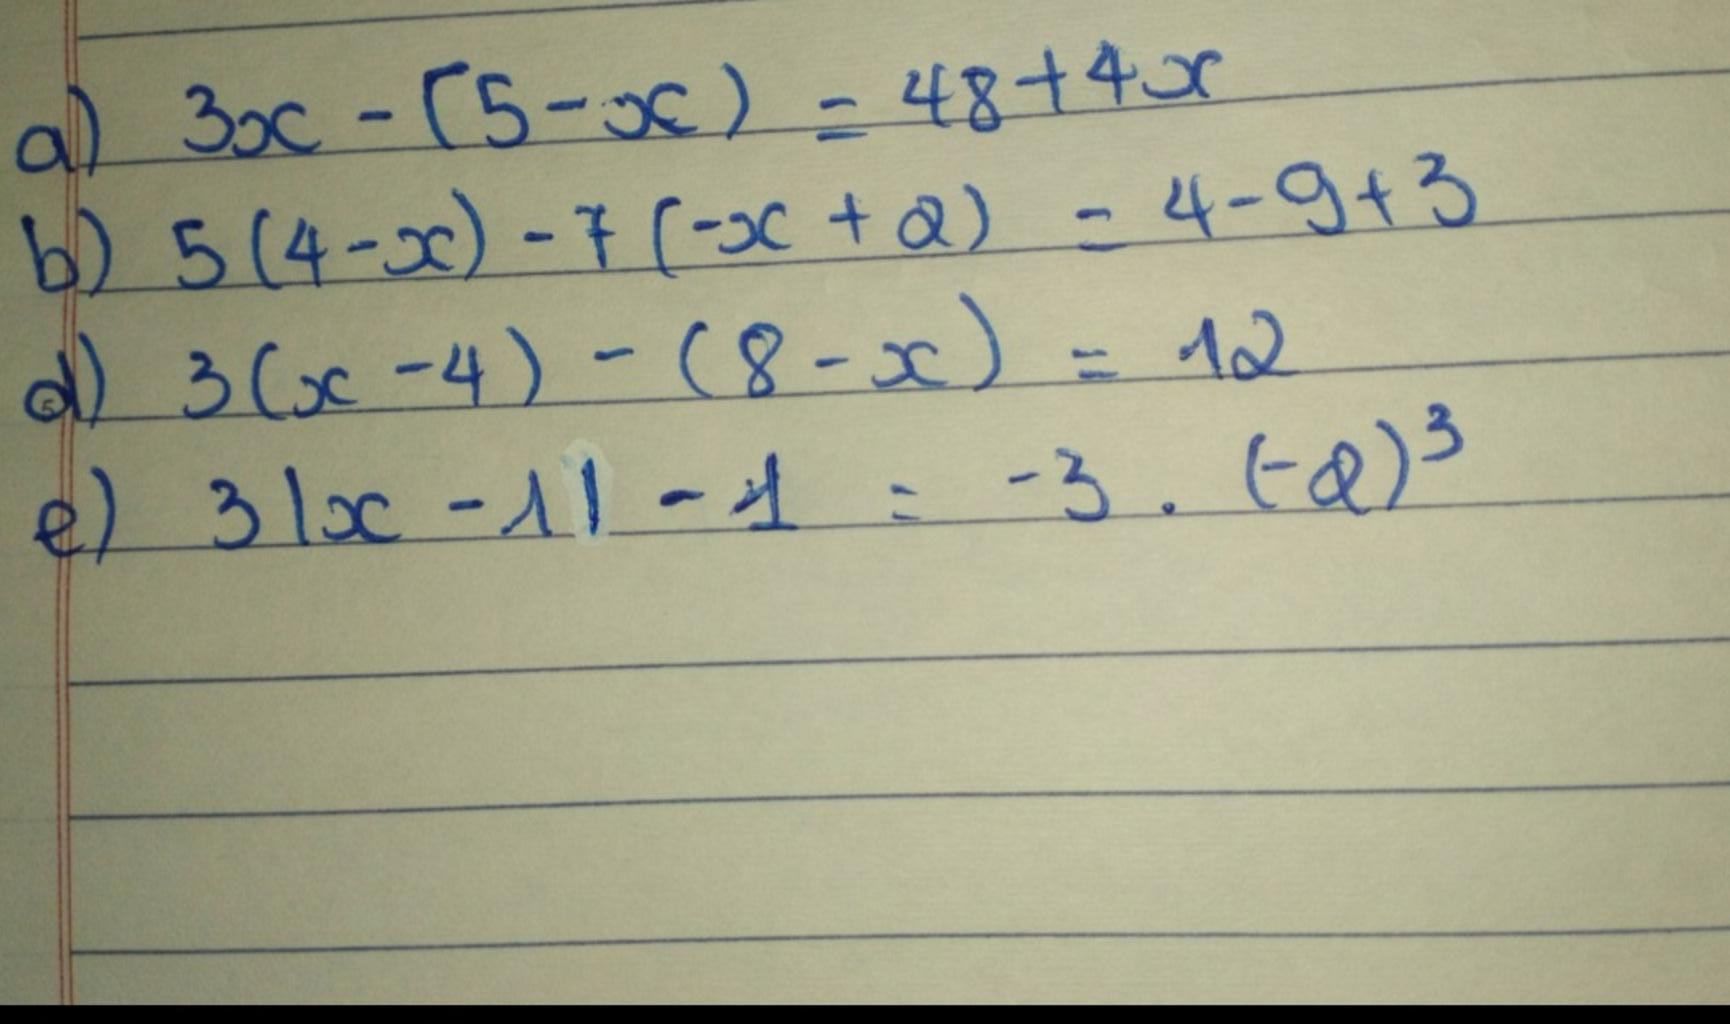 a) 3x - (5 - x) = 48 + 4x
b) 5(4 - x) - 7(-x + 2) = 4 - 9 + 3
d) 3(x - 4) - (8 - x) = 12
e) 3|x - 1| - 1 = -3 . (-2)³